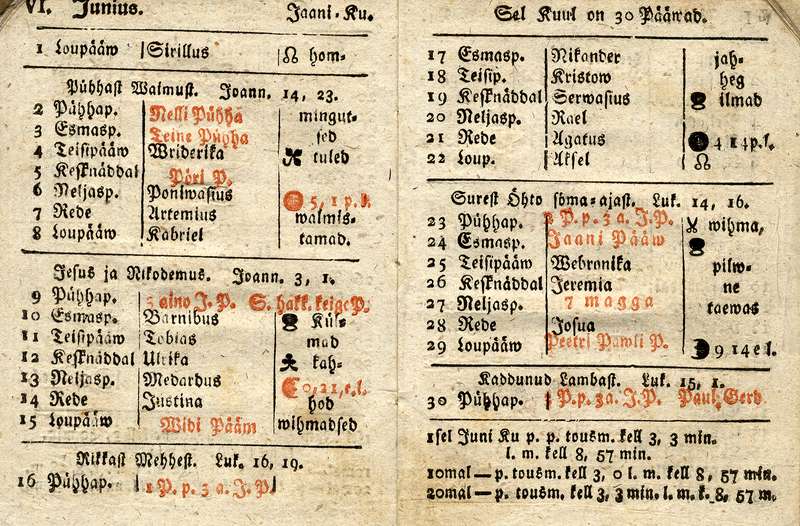 VI. Junius. Jaani-Ku.
1 Loupääw Sirillus ☊ hom-
Pühhast Walmust. Joann. 14, 23.
2 Pühhap. Nelli Pühha mingut-
3 Esmasp. Teine Pühha sed
4 Teisipääw Wriderika tuled
5 Kesknäddal Pöri P.
6 Neljasp. Poniwasius 5, 1 p.l.
7 Rede Artemius walmis-
8 Loupääw Kabriel tamad.
Jesus ja Nikodemus. Joann. 3, 1.
9 Pühhap. 3 aino J. P. S. hakk. keige P.
10 Esmasp. Barnibus Kül-
11 Teisipääw Tobias mad
12 Kesknäddal Ulrika kah-
13 Neljasp. Medardus ☾ 0, 21, e.l.
14 Rede Justina hod
15 Loupääw Widi Pääw wihmadsed
Rikkast Mehhest. Luk. 16, 19.
16 Pühhap. 1 P. p. 3 a. J. P.
Sel Kuul on 30 Pääwad.
17 Esmasp. Nikander jah-
18 Teisip. Kristow heg
19 Kesknäddal Serwasius ilmad
20 Neljasp. Rael
21 Rede Agatus 4 14 p.l.
22 Loup. Aksel ☊
Surest Öhto söma-ajast. Luk. 14, 16.
23 Pühhap. 2 P. p. 3 a. J. P. wihma,
24 Esmasp. Jaani Pääw
25 Teisipääw Webronika pilw-
26 Kesknäddal Jeremia ne
27 Neljasp. 7 magga taewas
28 Rede Josua
29 Loupääw Peetri Pawli P. 9 14 e l.
Kaddunud Lambast. Luk. 15, 1.
30 Pühhap. P. p. 3 a. J. P. Paul. Gerd
1sel Juni Ku p. p. tousm. kell 3, 3 min.
l. m. kell 8, 57 min.
10mal — p. tousm. kell 3, 0 l. m. kell 8, 57 min.
20mal — p. tousm. kell 3, 3 min. l. m. k. 8, 57 m.